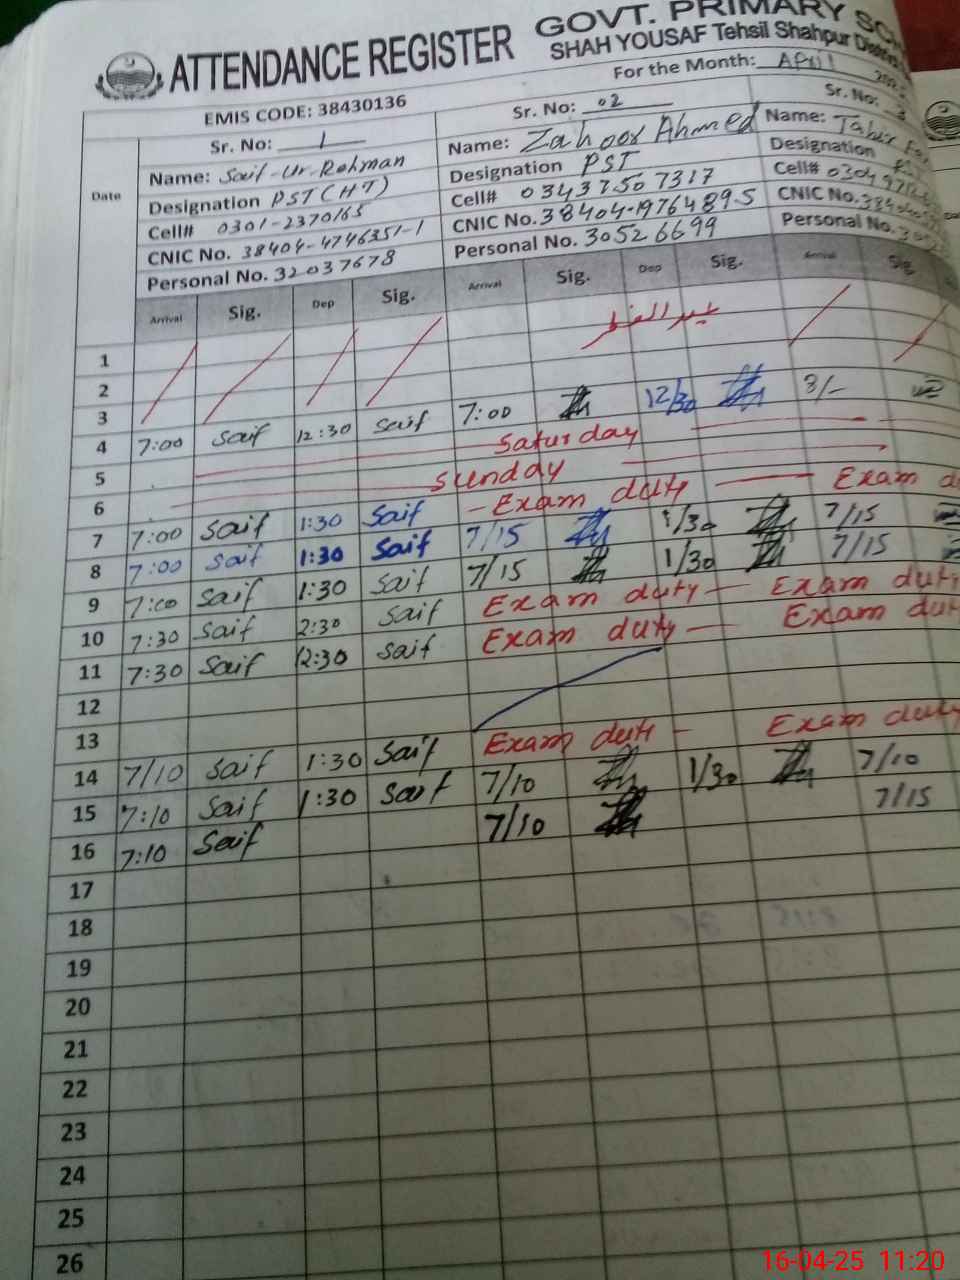 ATTENDANCE REGISTER GOVT. PRIMARY
SHAH YOUSAF Tehsil Shahpur
EMIS CODE: 38430136 For the Month: April
Date
Sr. No: 1
Name: Saif-Ur-Rehman
Designation PST(HT)
Cell# 0301-2370165
CNIC No. 38404-4746351-1
Personal No. 32037678
Sr. No: 02
Name: Zahoor Ahmed
Designation PST
Cell# 03437507317
CNIC No. 38404-1976489-5
Personal No. 30526699
Sr. No: 3
Name: Tahir
Designation
Cell#
CNIC No.
Personal No.
Arrival Sig. Dep Sig. Arrival Sig. Dep Sig. Arrival Sig.
1
2
3
4 7:00 Saif 12:30 Saif 7:00 12/30 8/-
5 Saturday
6 Sunday
7 7:00 Saif 1:30 Saif - Exam duty — Exam
8 7:00 Saif 1:30 Saif 7/15 1/30 7/15
9 7:00 Saif 1:30 Saif 7/15 1/30 7/15
10 7:30 Saif 2:30 Saif Exam duty — Exam duty
11 7:30 Saif 12:30 Saif Exam duty — Exam duty
12
13
14 7/10 Saif 1:30 Saif Exam duty - Exam duty
15 7:10 Saif 1:30 Saif 7/10 1/30 7/10
16 7:10 Saif 7/10 7/15
17
18
19
20
21
22
23
24
25
26
16-04-25 11:20